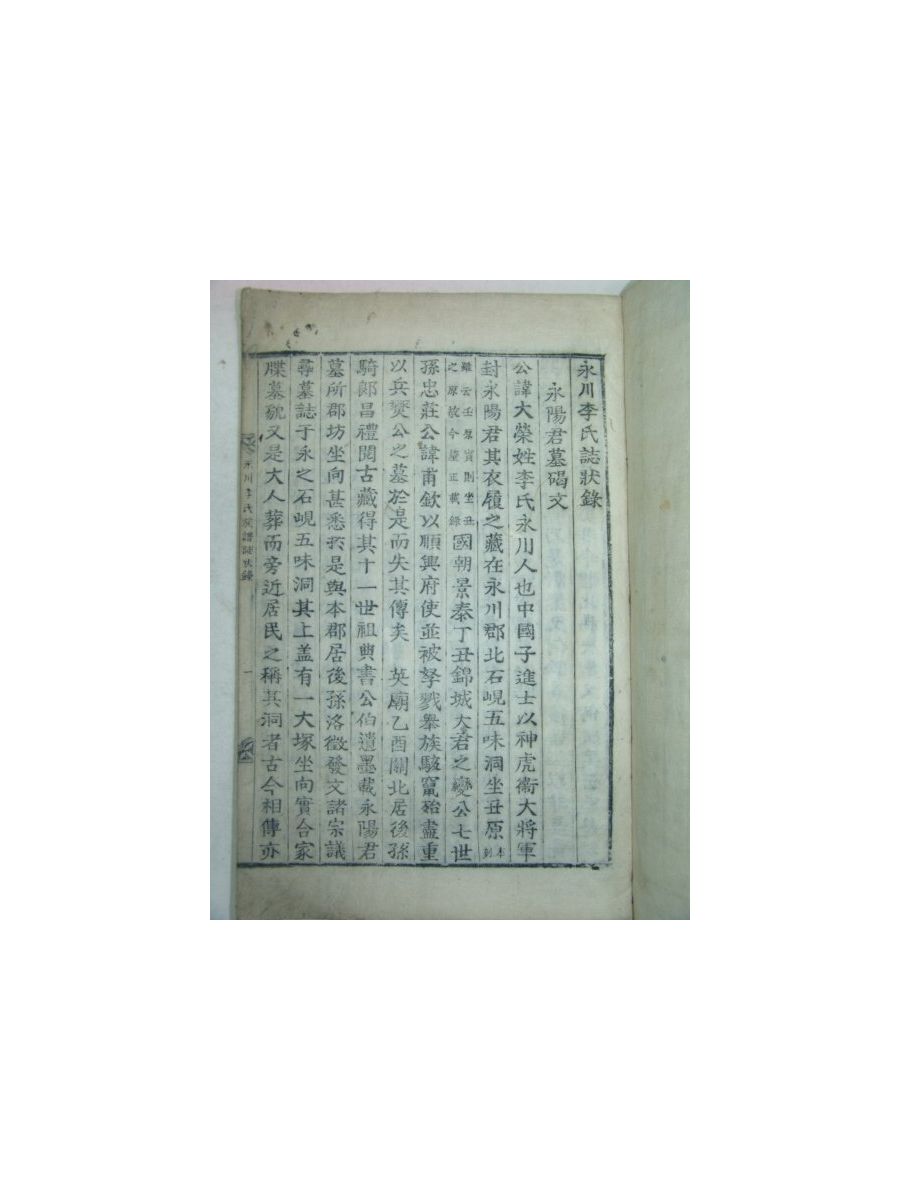 永川李氏誌狀錄
永陽君墓碣文
公諱大榮姓李氏永川人也中國子進士以神虎衛大將軍
封永陽君其衣履之藏在永川郡北石峴五味洞坐丑原本刻
雖云壬原實則坐丑之原故今釐正載錄國朝景泰丁丑錦城大君之變公七世
孫忠莊公諱甫欽以順興府使並被孥戮擧族駭竄殆盡重
以兵燹公之墓於是而失其傳矣 英廟乙酉關北居後孫
騎郞昌禮閱古藏得其十一世祖典書公伯遺墨載永陽君
墓所郡坊坐向甚悉於是與本郡居後孫洛徵發文諸宗議
尋墓誌于永之石峴五味洞其上盖有一大塚坐向實合家
牒墓貌又是大人葬而旁近居民之稱其洞者古今相傳亦
永川李氏族譜誌狀錄 一